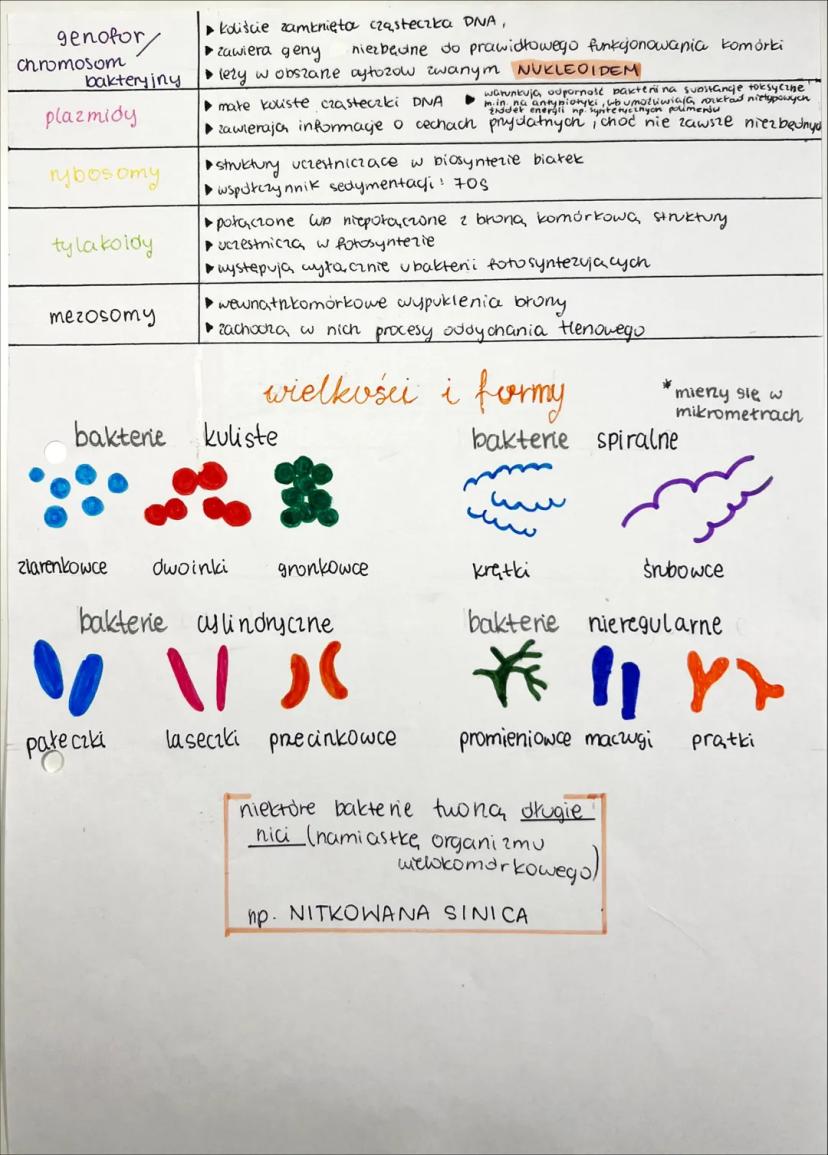 genofor/
chromosom
bakteryjny
▸ koliście zamknięta cząsteczka DNA,
▸ zawiera geny niezbędne do prawidłowego funkcjonowania komórki
▸ leży w obszarze cytozolu zwanym NUKLEOIDEM
plazmidy
▸ małe koliste cząsteczki DNA
▸ warunkują oporność bakterii na substancje toksyczne
m.in. na antybiotyki, lub umożliwiają rozkład nietypowych
źródeł energii np. syntetycznych polimerów
▸ zawierają informacje o cechach przydatnych, choć nie zawsze niezbędnych
rybosomy
▸ struktury uczestniczące w biosyntezie białek
▸ współczynnik sedymentacji: 70S
tylakoidy
▸ połączone lub niepołączone z broną komórkową struktury
▸ uczestniczą w fotosyntezie
▸ występują wyłącznie u bakterii fotosyntezujących
mezosomy
▸ wewnątrzkomórkowe wypuklenia brony
▸ zachodzą w nich procesy oddychania tlenowego
wielkości i formy
*mierzy się w
mikrometrach
bakterie kuliste
bakterie spiralne
ziarenkowce dwoinki gronkowce
krętki śrubowce
bakterie cylindryczne
bakterie nieregularne
pałeczki laseczki przecinkowce
promieniowce maczugi prątki
niektóre bakterie tworzą długie
nici (namiastkę organizmu
wielokomórkowego)
np. NITKOWANA SINICA